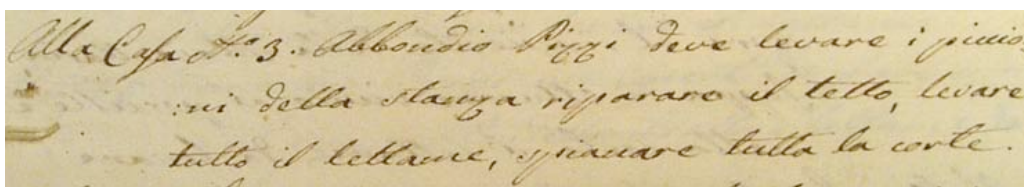 Alla Casa N.o 3. Abbondio Pizzi deve levare i piccio
:ni della stanza riparare il tetto, levare
tutto il lettame, spianare tutta la corte.